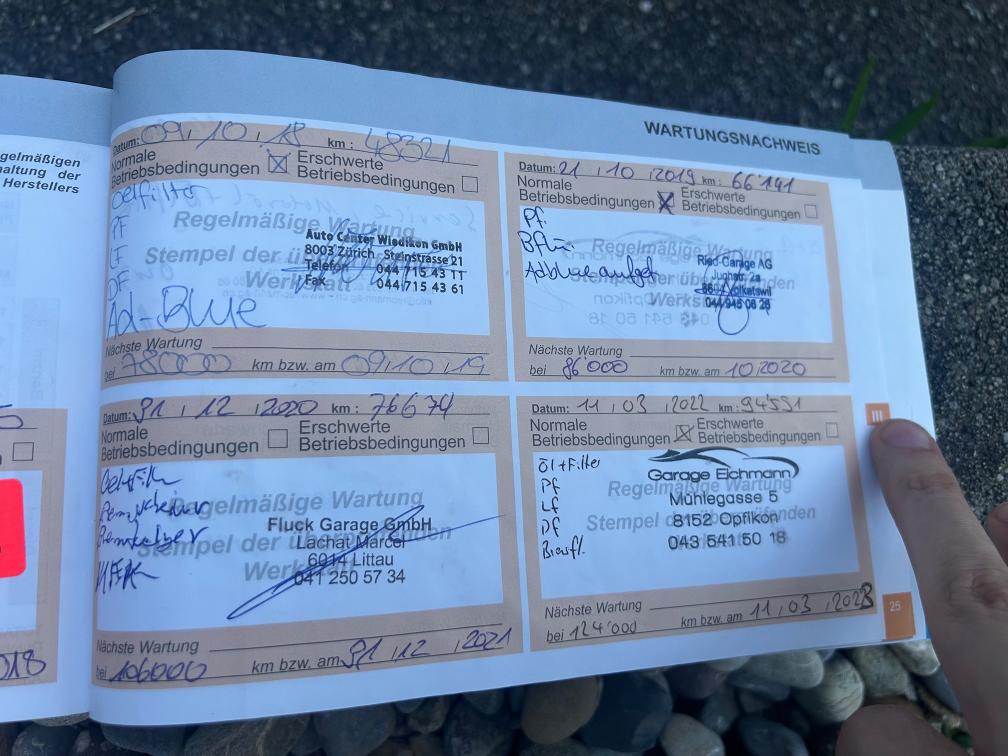 gelmäßigen
altung der
Herstellers
018
WARTUNGSNACHWEIS
Datum: 09.10.18 km: 48321
Normale
Betriebsbedingungen
Erschwerte
Betriebsbedingungen
Oelfilter
PF
IF
DF
Ad-Blue
Regelmäßige Wartung
Stempel der überprüfenden
Werkstatt
Auto Center Wiedikon GmbH
8003 Zürich Steinstrasse 21
Telefon 044 715 43 11
Fax 044 715 43 61
Nächste Wartung
bei 78000 km bzw. am 09.10.19
Datum: 21.10.2019 km: 66'191
Normale
Betriebsbedingungen
Erschwerte
Betriebsbedingungen
Pf.
Adblue aufgef.
Regelmäßige Wartung
Stempel der überprüfenden
Werkstatt
Ried-Garage AG
Jughstr. 2a
8604 Volketswil
044 945 06 26
Nächste Wartung
bei 86'000 km bzw. am 10.2020
Datum: 31.12.2020 km: 76674
Normale
Betriebsbedingungen
Erschwerte
Betriebsbedingungen
Regelmäßige Wartung
Stempel der überprüfenden
Werkstatt
Fluck Garage GmbH
Lachat Marcel
6014 Littau
041 250 57 34
Nächste Wartung
bei 106000 km bzw. am 31.12.2021
Datum: 11.03.2022 km: 94591
Normale
Betriebsbedingungen
Erschwerte
Betriebsbedingungen
Öl+Filter
Pf
Lf
Df
Bremsfl.
Regelmäßige Wartung
Stempel der überprüfenden
Garage Eichmann
Mühlegasse 5
8152 Opfikon
043 541 50 18
Nächste Wartung
bei 124'000 km bzw. am 11.03.2023
III
25